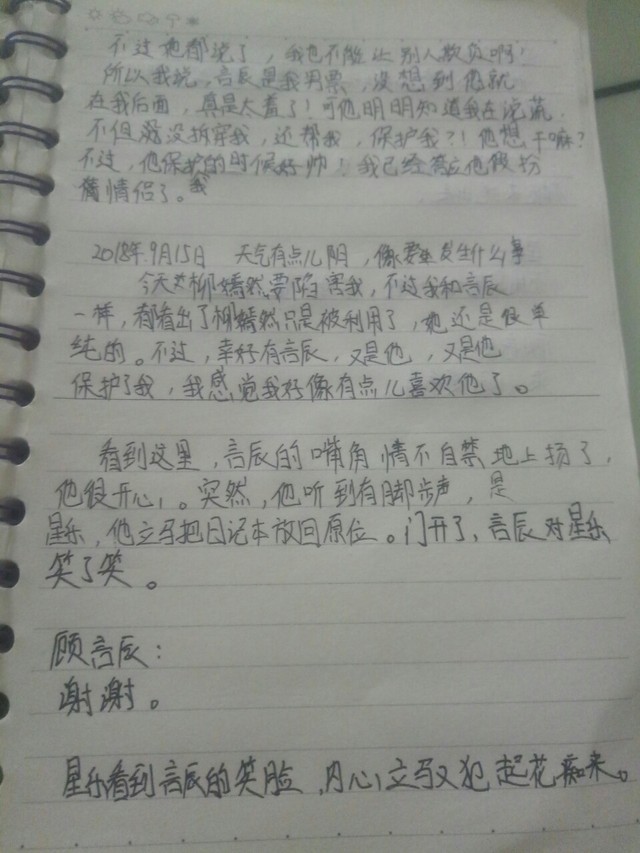 不过她都说了，我也不能让别人欺负啊！
所以我说，言辰是我男票，没想到他就
在我后面，真是太羞了！可他明明知道我在说谎，
不但没拆穿我，还帮我，保护我？！他想干嘛？
不过，他保护我的时候好帅！我已经答应他假扮
情侣了。
2018年9月15日 天气有点儿阴，像要发生什么事
今天柳嫣然要陷害我，不过我和言辰
一样，都看出了柳嫣然只是被利用了，她还是很单
纯的。不过，幸好有言辰，又是他，又是他
保护了我，我感觉我好像有点儿喜欢他了。
看到这里，言辰的嘴角情不自禁地上扬了，
他很开心。突然，他听到有脚步声，是
星乐，他立马把日记本放回原位。门开了，言辰对星乐
笑了笑。
顾言辰：
谢谢。
星乐看到言辰的笑脸，内心立马又犯起花痴来。